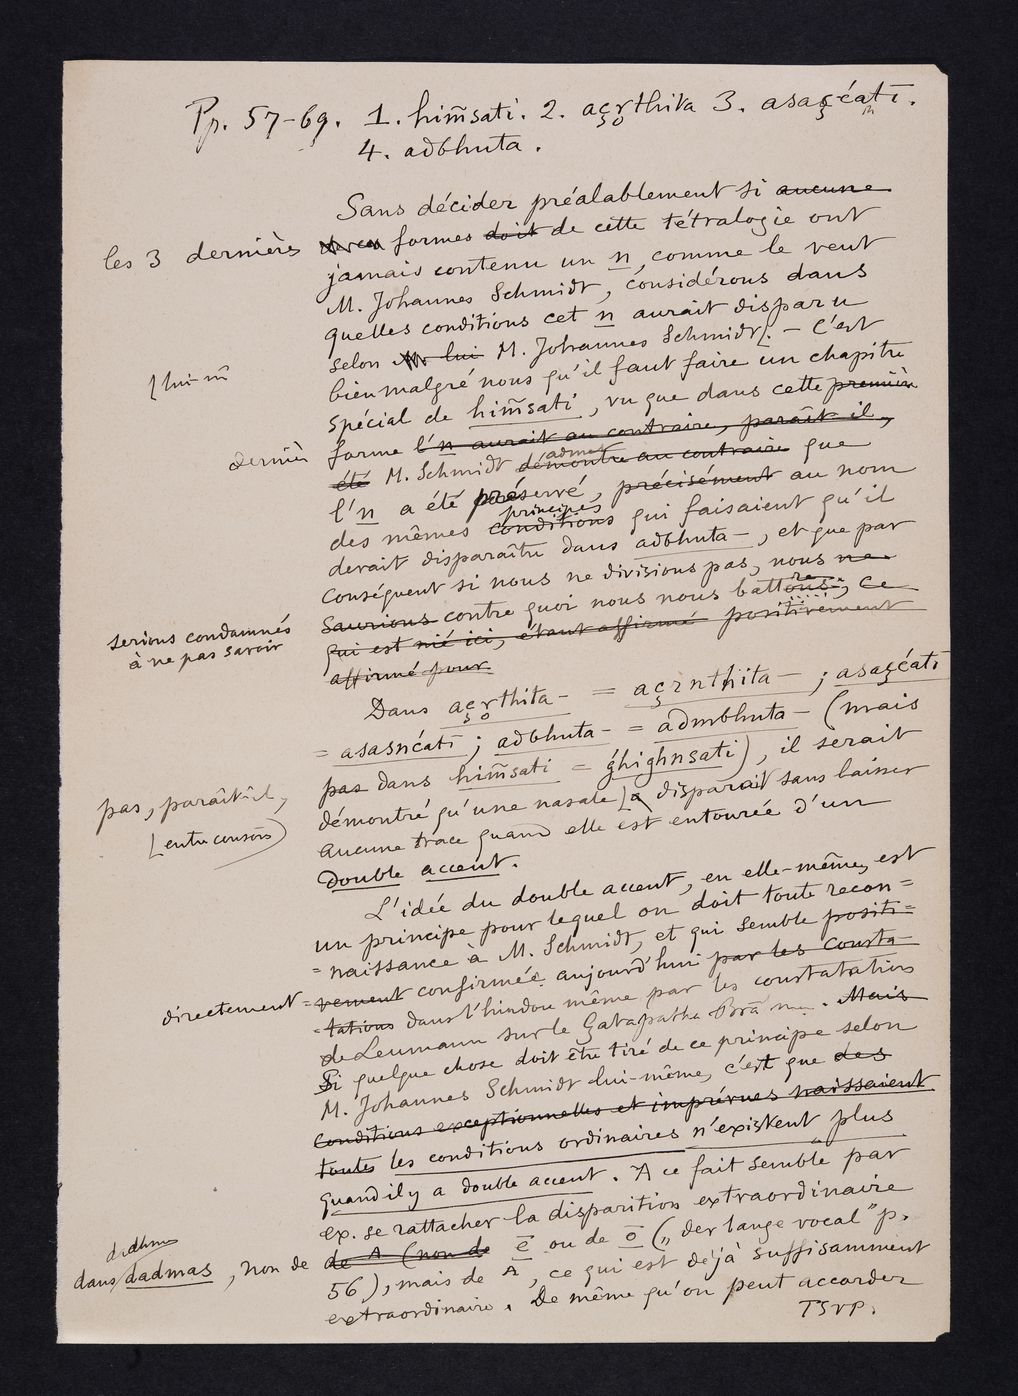 Pp. 57-69. 1. him̃sati. 2. açr̥thita 3. asaçćatī.
4. adbhuta.
Sans décider préalablement si aucune
les 3 dernières formes doit de cette tétralogie ont
jamais contenu un n, comme le veut
M. Johannes Schmidt, considérons dans
quelles conditions cet n aurait disparu
selon lui M. Johannes Schmidt. – C'est
bien malgré nous qu'il faut faire un chapitre
spécial de him̃sati, vu que dans cette première
dernière forme l'n aurait au contraire, paraît il,
été M. Schmidt démontre au contraire admet que
l'n a été préservé, précisément au nom
des mêmes conditions principes qui faisaient qu'il
devait disparaître dans adbhuta-, et que par
conséquent si nous ne divisions pas, nous ne
serions condamnés à ne pas savoir
saurions contre quoi nous nous battons, ce
qui est nié ici, étant affirmé positivement
affirmé pour
Dans açr̥thita- = açrnthita- ; asaçćatī
= asasnćatī ; adbhuta- = admbhuta- (mais
pas dans him̃sati = ǵhighnsati), il serait
pas, paraît-il,
démontré qu'une nasale disparait sans laisser
[entre consons)
aucune trace quand elle est entourée d'un
double accent.
L'idée du double accent, en elle-même, est
un principe pour lequel on doit toute recon=
=naissance à M. Schmidt, et qui semble positi=
directement =vement confirmée aujourd'hui par les consta-
-tations dans l'hindou même par les constatations
de Leumann sur le Çatapatha Brā m. Mais
Si quelque chose doit être tiré de ce principe selon
M. Johannes Schmidt lui-même, c'est que des
conditions exceptionnelles et imprévues naissaient
toutes les conditions ordinaires n'existent plus
quand il y a double accent. A ce fait semble par
ex. se rattacher la disparition extraordinaire
dans dadmas, non de de A (non de ē ou de ō („der lange vocal" p.
56), mais de A, ce qui est déjà suffisamment
extraordinaire. De même qu'on peut accorder
TSVP.